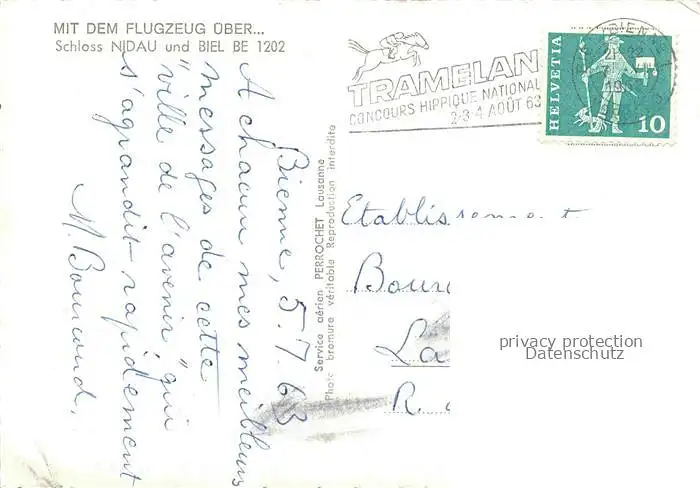 MIT DEM FLUGZEUG ÜBER...
Schloss NIDAU und BIEL BE 1202
TRAMELAN
CONCOURS HIPPIQUE NATIONAL
2-3-4 AOÛT 63
HELVETIA
10
BIEN
Bienne, 5.7.63
A chacun mes meilleurs
messages de cette
"ville de l'avenir" qui
s'agrandit rapidement
M. Bourcand.
Service aérien PERROCHET Lausanne
Photo bromure véritable Reproduction interdite
Etablissement
Bour
La
R.
privacy protection
Datenschutz